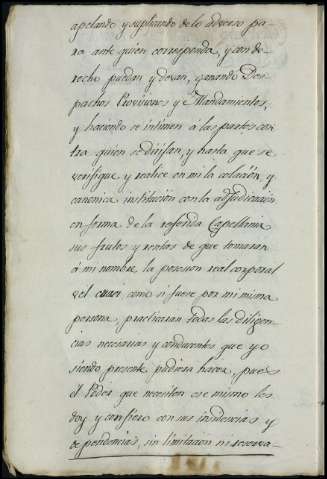 apelando y suplicando de lo adverso pa-
ra ante quien corresponda, y con de-
recho puedan y devan, ganando Des-
pachos Provisiones y Mandamientos,
y haciendo se intimen á las partes con
tra quien se dirijan, y hasta que se
verifique y realice en mi la colación y
canonica institución con la adjudicación
en forma de la referida Capellania
sus frutos y rentas de que tomaran
á mi nombre la posesion real corporal
vel cuasi como si fuere por mi misma
persona, practicaran todas las diligen
cias necesarias y conducentes que yo
siendo presente pudiera hacer, pues
el Poder que necesiten ese mismo les
doy y confiero con sus insidencias y
dependencias, sin limitacion ni reserva